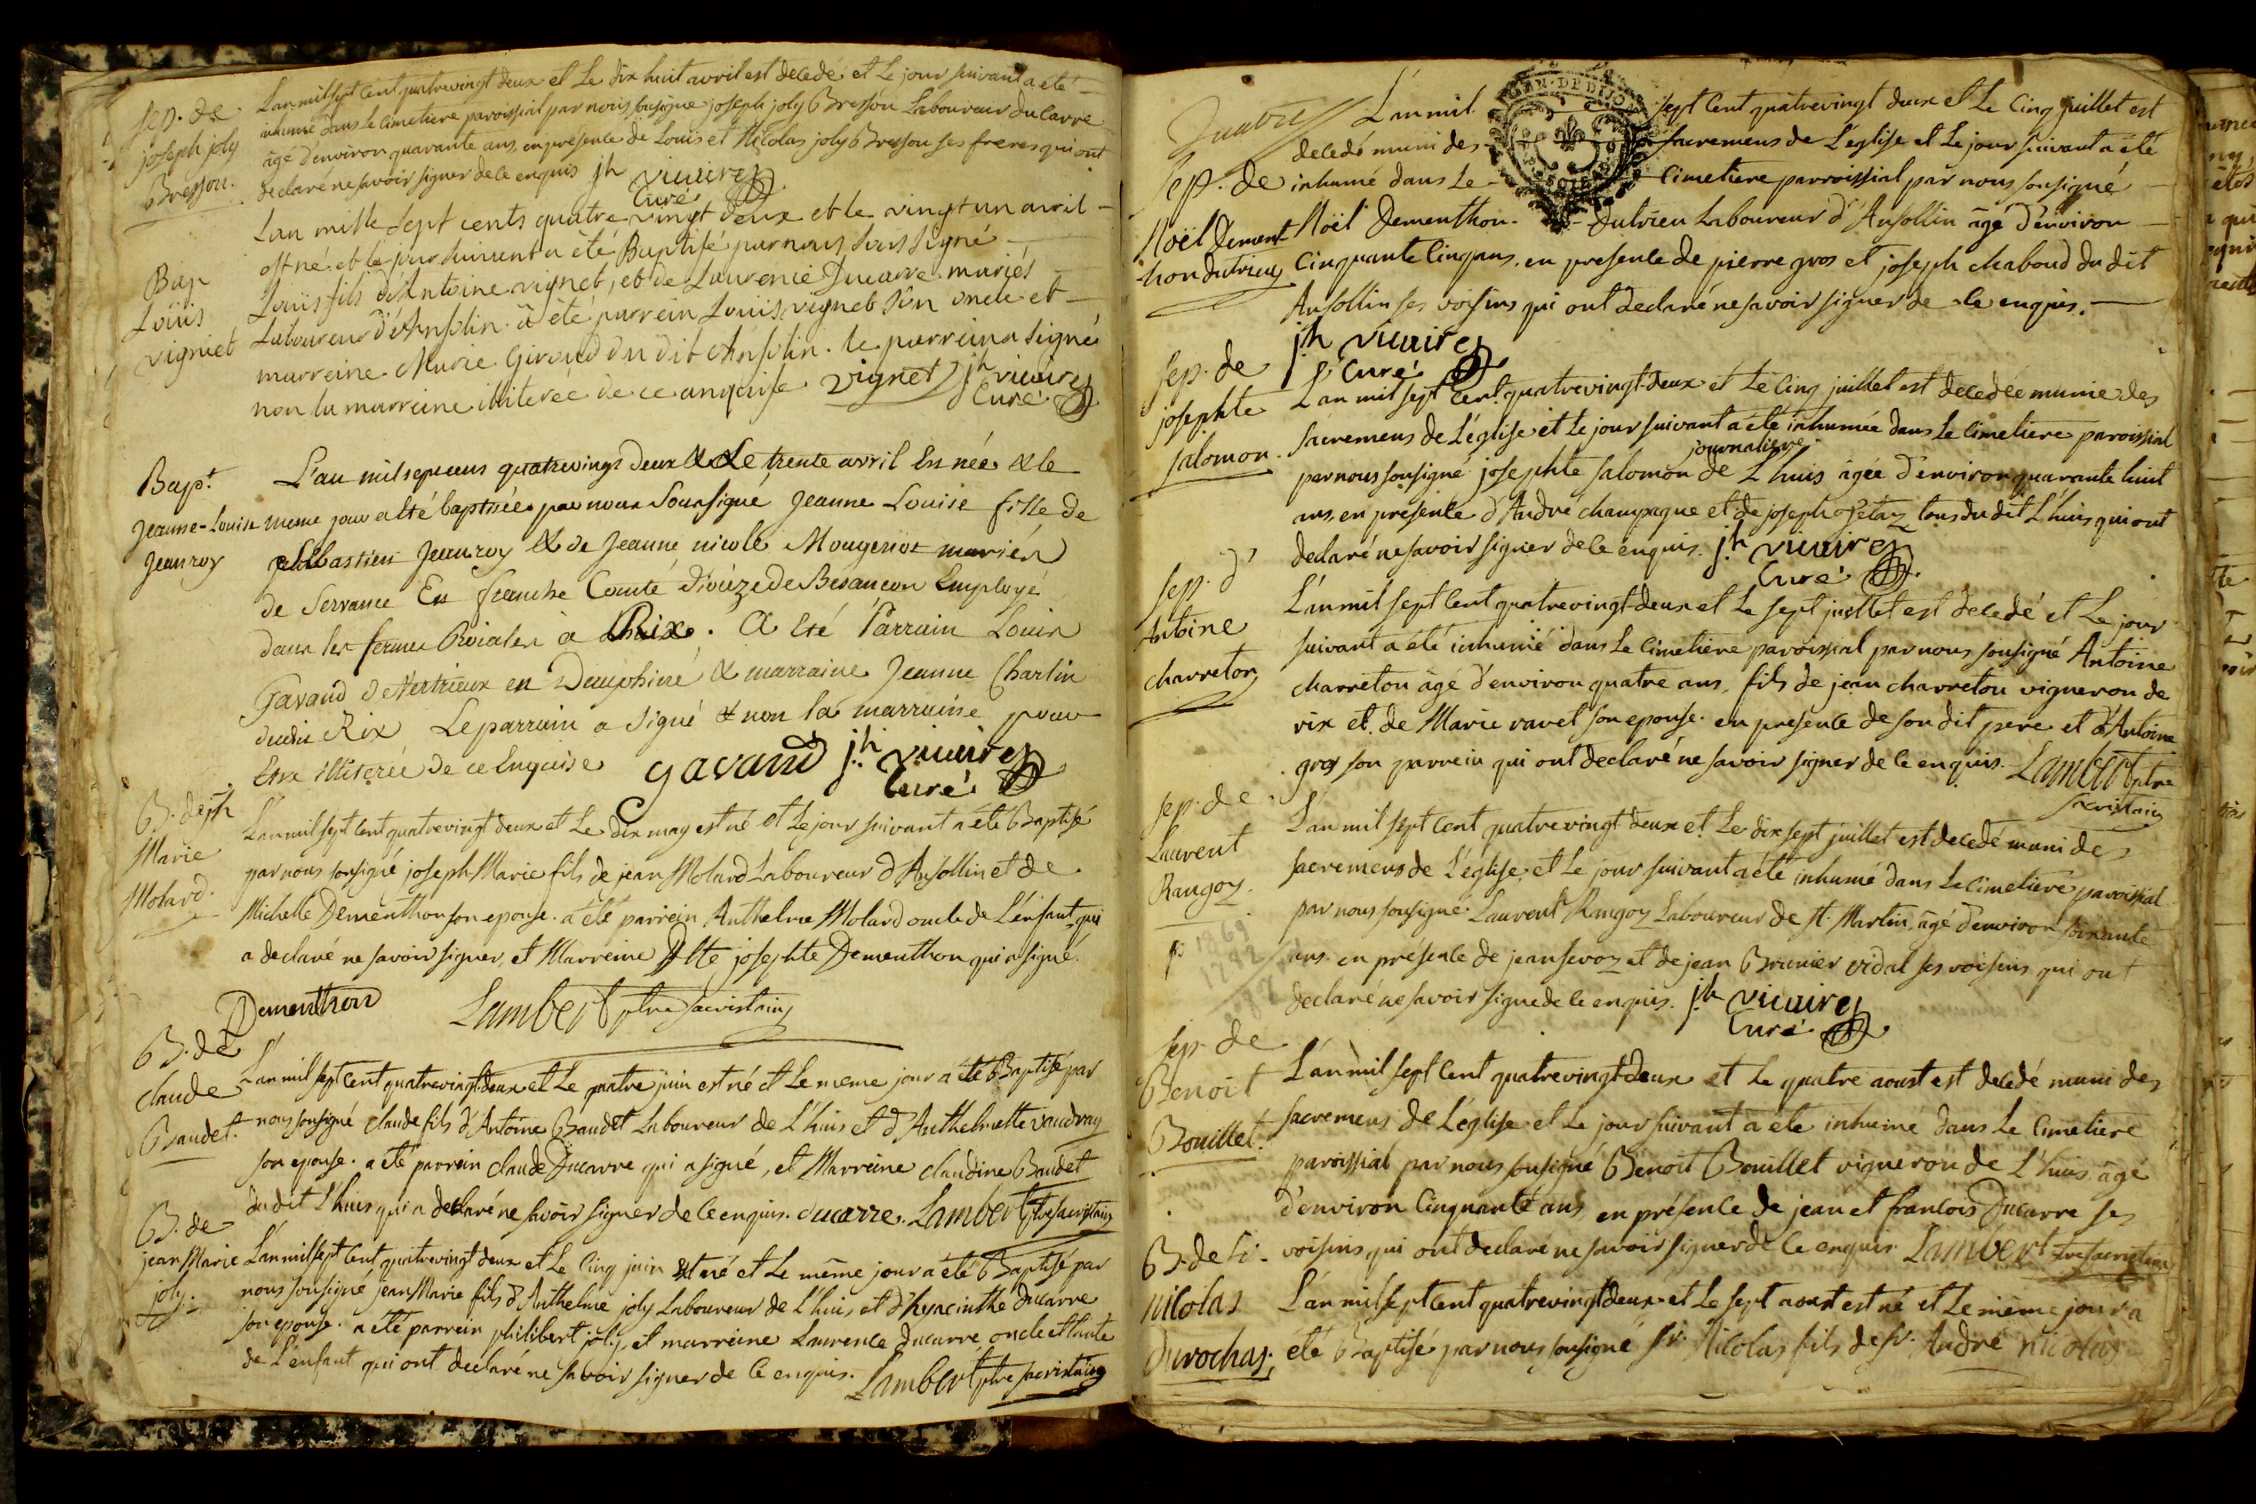 Sep. de
joseph joly
Bresson.
L'an mil sept cent quatrevingt deux et Le dix huit avril est decedé et Le jour suivant a été
inhumé dans le cimetiere paroissial par nous sousigné joseph joly Bresson Laboureur du Carre
âgé d'environ quarante ans, en presence de Louis et Nicolas joly Bresson ses freres qui ont
declaré ne savoir signer de ce enquis jh vicaire
Curé
Bap
Loüis
vignet
Lan mille sept cents quatre vingt deux et le vingt un avril
est né et le jour suivant a été Baptisé par nous sous signé
Loüis fils d'Antoine vignet, et de Laurence Ducarre mariés
Laboureur d'Ansolin. a été parrein Louis vignet son oncle et
marreine Marie Giroud du dit Ansolin. le parrein a signé
non la marreine illiterée de ce anquise vignet jh vicaire
Curé
Bapt.
Jeanne-Louise
Jeanroy
L'an mil sept cens quatrevingt deux & Le trente avril Est née & le
meme jour a Eté baptisée par nous Soussigné Jeanne Louise fille de
Sébastien Jeanroy & de Jeanne nicole Mougenot mariés
de Servance En franche Comté Diocèze de Besançon Employé
dans les fermes Roiales a Rix. A Eté Parrain Louis
Gavand de Vertrieux en Dauphiné & marraine Jeanne Charlin
dudit Rix Le parrain a Signé & non la marraine pour
Etre illiterée de ce Enquise Gavand jh vicaire
Curé
B. de jph
Marie
Molard.
L'an mil sept cent quatrevingt deux et Le dix may est né et Le jour suivant a été Baptisé
par nous sousigné joseph Marie fils de jean Molard Laboureur d'Ansollin et de
Michelle Dementhon son epouse. a été parrein Anthelme Molard oncle de L'enfant, qui
a declaré ne savoir signer, et Marreine Dlle josephte Dementhon qui a signé.
Dementhon Lambert ptre sacristain
B. de
claude
Baudet.
L'an mil sept cent quatrevingt deux et Le quatre juin est né et Le meme jour a été Baptisé par
nous sousigné claude fils d'Antoine Baudet Laboureur de L'huis et d'Anthelmette vaudray
son epouse. a été parrein claude Ducarre qui a signé, et Marreine claudine Baudet
du dit L'huis qui a declaré ne savoir signer de ce enquis. ducarre. Lambert ptre sacristain
B. de
jean Marie
joly.
L'an mil sept cent quatrevingt deux et Le cinq juin est né et Le même jour a été Baptisé par
nous sousigné jean Marie fils d'Anthelme joly Laboureur de L'huis et d'hyacinthe Ducarre
son epouse. a été parrein philibert joly, et marreine Laurence Ducarre, oncle et tante
de L'enfant qui ont declaré ne savoir signer de ce enquis. Lambert ptre sacristain
quatre
GEN. DE DIJON
Sep. de
Noël Dement
hon dutrieu
L'an mil sept cent quatrevingt deux et Le cinq juillet est
decedé muni des sacremens de L'eglise et Le jour suivant a été
inhumé dans Le cimetiere parroissial par nous sousigné
Noël Dementhon - Dutrieu Laboureur d'Ansollin âgé d'environ
cinquante cinq ans, en presence de pierre gros et joseph chaboud du dit
Ansollin ses voisins qui ont declaré ne savoir signer de ce enquis.
jh vicaire
Curé
Sep. de
josephte
Salomon.
L'an mil sept cent quatrevingt deux et Le cinq juillet est decedée munie des
sacremens de L'église et Le jour suivant a été inhumée dans Le cimetiere paroissial
journaliere
par nous sousigné josephte salomon de L'huis âgée d'environ quarante huit
ans, en présence d'André champagne et de joseph tous du dit L'huis qui ont
declaré ne savoir signer de ce enquis. jh vicaire
Curé
Sep. d'
Antoine
charreton
L'an mil sept cent quatrevingt deux et Le sept juillet est decedé et Le jour
suivant a été inhumé dans Le cimetiere paroissial par nous sousigné Antoine
charreton âgé d'environ quatre ans, fils de jean charreton vigneron de
rix et de Marie ravet son epouse. en presence de son dit pere et d'Antoine
gros son parrein qui ont declaré ne savoir signer de ce enquis. Lambert ptre
sacristain
Sep. de
Laurent
Rangoz.
L'an mil sept cent quatrevingt deux et Le dix sept juillet est decedé muni des
sacremens de L'église et Le jour suivant a été inhumé dans Le cimetiere paroissial
par nous sousigné. Laurent Rangoz Laboureur de St. Martin, âgé d'environ soixante
ans. en présence de jean sevoz et de jean Brunier vidal ses voisins qui ont
declaré ne savoir signe de ce enquis. jh vicaire
Curé
Sep. de
Benoit
Bouillet.
L'an mil sept cent quatrevingt-deux et Le quatre aoust est decedé muni des
sacremens de L'église et Le jour suivant a été inhumé dans Le cimetiere
paroissial par nous sousigné Benoit Bouillet vigneron de L'huis âgé
d'environ cinquante ans, en présence de jean et francois Ducarre ses
voisins qui ont declaré ne savoir signer de ce enquis Lambert ptre sacristain
B. de Sr.
Nicolas
Durochas,
L'an mil sept cent quatrevingt deux et Le sept aoust est né et Le même jour a
été Baptisé par nous sousigné Sr. Nicolas fils de Sr. André Nicolas